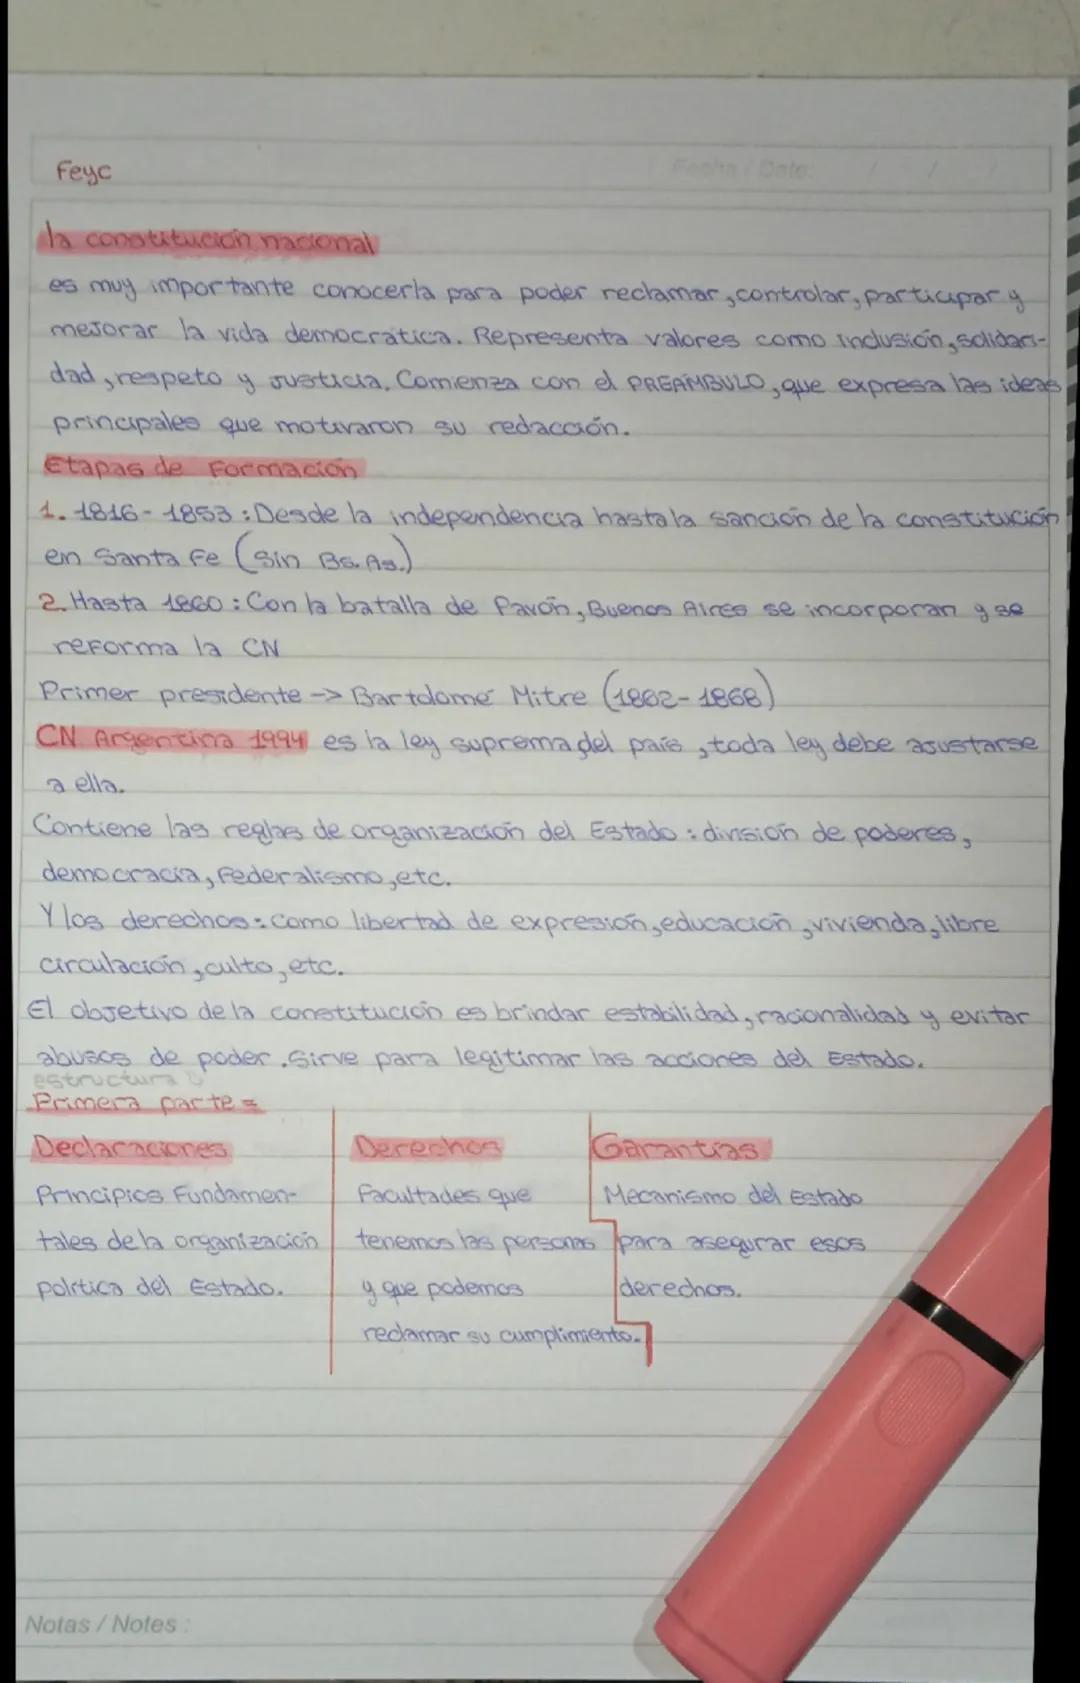 Feyc
Fecha / Date: / /
la constitución nacional
es muy importante conocerla para poder reclamar, controlar, participar y
mejorar la vida democrática. Representa valores como inclusión, solidari-
dad, respeto y justicia. Comienza con el PREÁMBULO, que expresa las ideas
principales que motivaron su redacción.
Etapas de Formación
1. 1816 - 1853 : Desde la independencia hasta la sanción de la constitución
en Santa Fe (sin Bs. As.)
2. Hasta 1860 : Con la batalla de Pavón, Buenos Aires se incorporan y se
reforma la CN
Primer presidente -> Bartolomé Mitre (1862 - 1868)
CN Argentina 1994 es la ley suprema del país, toda ley debe ajustarse
a ella.
Contiene las reglas de organización del Estado : división de poderes,
democracia, Federalismo, etc.
Y los derechos : como libertad de expresión, educación, vivienda, libre
circulación, culto, etc.
El objetivo de la constitución es brindar estabilidad, racionalidad y evitar
abusos de poder. Sirve para legitimar las acciones del Estado.
estructura
Primera parte =
Declaraciones Derechos Garantías
Principios Fundamen- Facultades que Mecanismo del Estado
tales de la organización tenemos las personas para asegurar esos
política del Estado. y que podemos derechos.
reclamar su cumplimiento.
Notas / Notes :